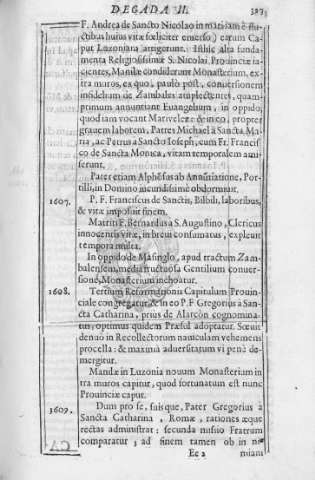 DECADA II. 387.
F. Andrea de Sancto Nicolao in mari iam è flu-
ctibus huius vitæ fœliciter emerso) earum Ca-
put Luzoniam attigerunt. Isthic alta funda-
menta Religiosissimæ S. Nicolai Prouinciæ ia-
cientes, Manilæ condiderunt Monasterium, ex-
tra muros, ex quo, paulò post, conuersionem
infidelium de Zambales amplectentes, quam-
primum annuntiant Euangelium, in oppido,
quod iam vocant Mariuelez: & in eo, propter
grauem laborem, Patres Michael à Sancta Ma-
ria, ac Petrus à Sancto Ioseph, cum Fr. Francis-
co de Sancta Monica, vitam temporalem ami-
serunt.
Pater etiam Alphōsus ab Annūtiatione, Por-
tilli, in Domino iucundissimè obdormiuit.
1607. P. F. Franciscus de Sanctis, Bilbili, laboribus,
& vitæ imposuit finem.
Matriti F. Bernardus à S. Augustino, Clericus
innocentis vitæ, in breui consumatus, expleuit
tempora multa.
In oppido de Masinglo, apud tractum Zam-
balensem, media fructuosa Gentilium conuer-
sionē, Monasterium inchoatur.
1608. Tertium Reformationis Capitulum Prouin-
ciale congregatur, & in eo P. F. Gregorius à San-
cta Catharina, priùs de Alarcòn cognomina-
tus, optimus quidem Præsul adoptatur. Sæuit
denuò in Recollectorum nauiculam vehemens
procella: & maxima aduersitatum vi penè de-
mergitur.
Mandæ in Luzonia nouum Monasterium in-
tra muros capitur, quod fortunatum est nunc
Prouinciæ caput.
1609. Dum pro se, suisque, Pater Gregorius à
Sancta Catharina, Romæ, rationes æque
rectas administrat: secunda missio Fratrum
comparatur, ad finem tamen ob in no-
Ee 2 miani